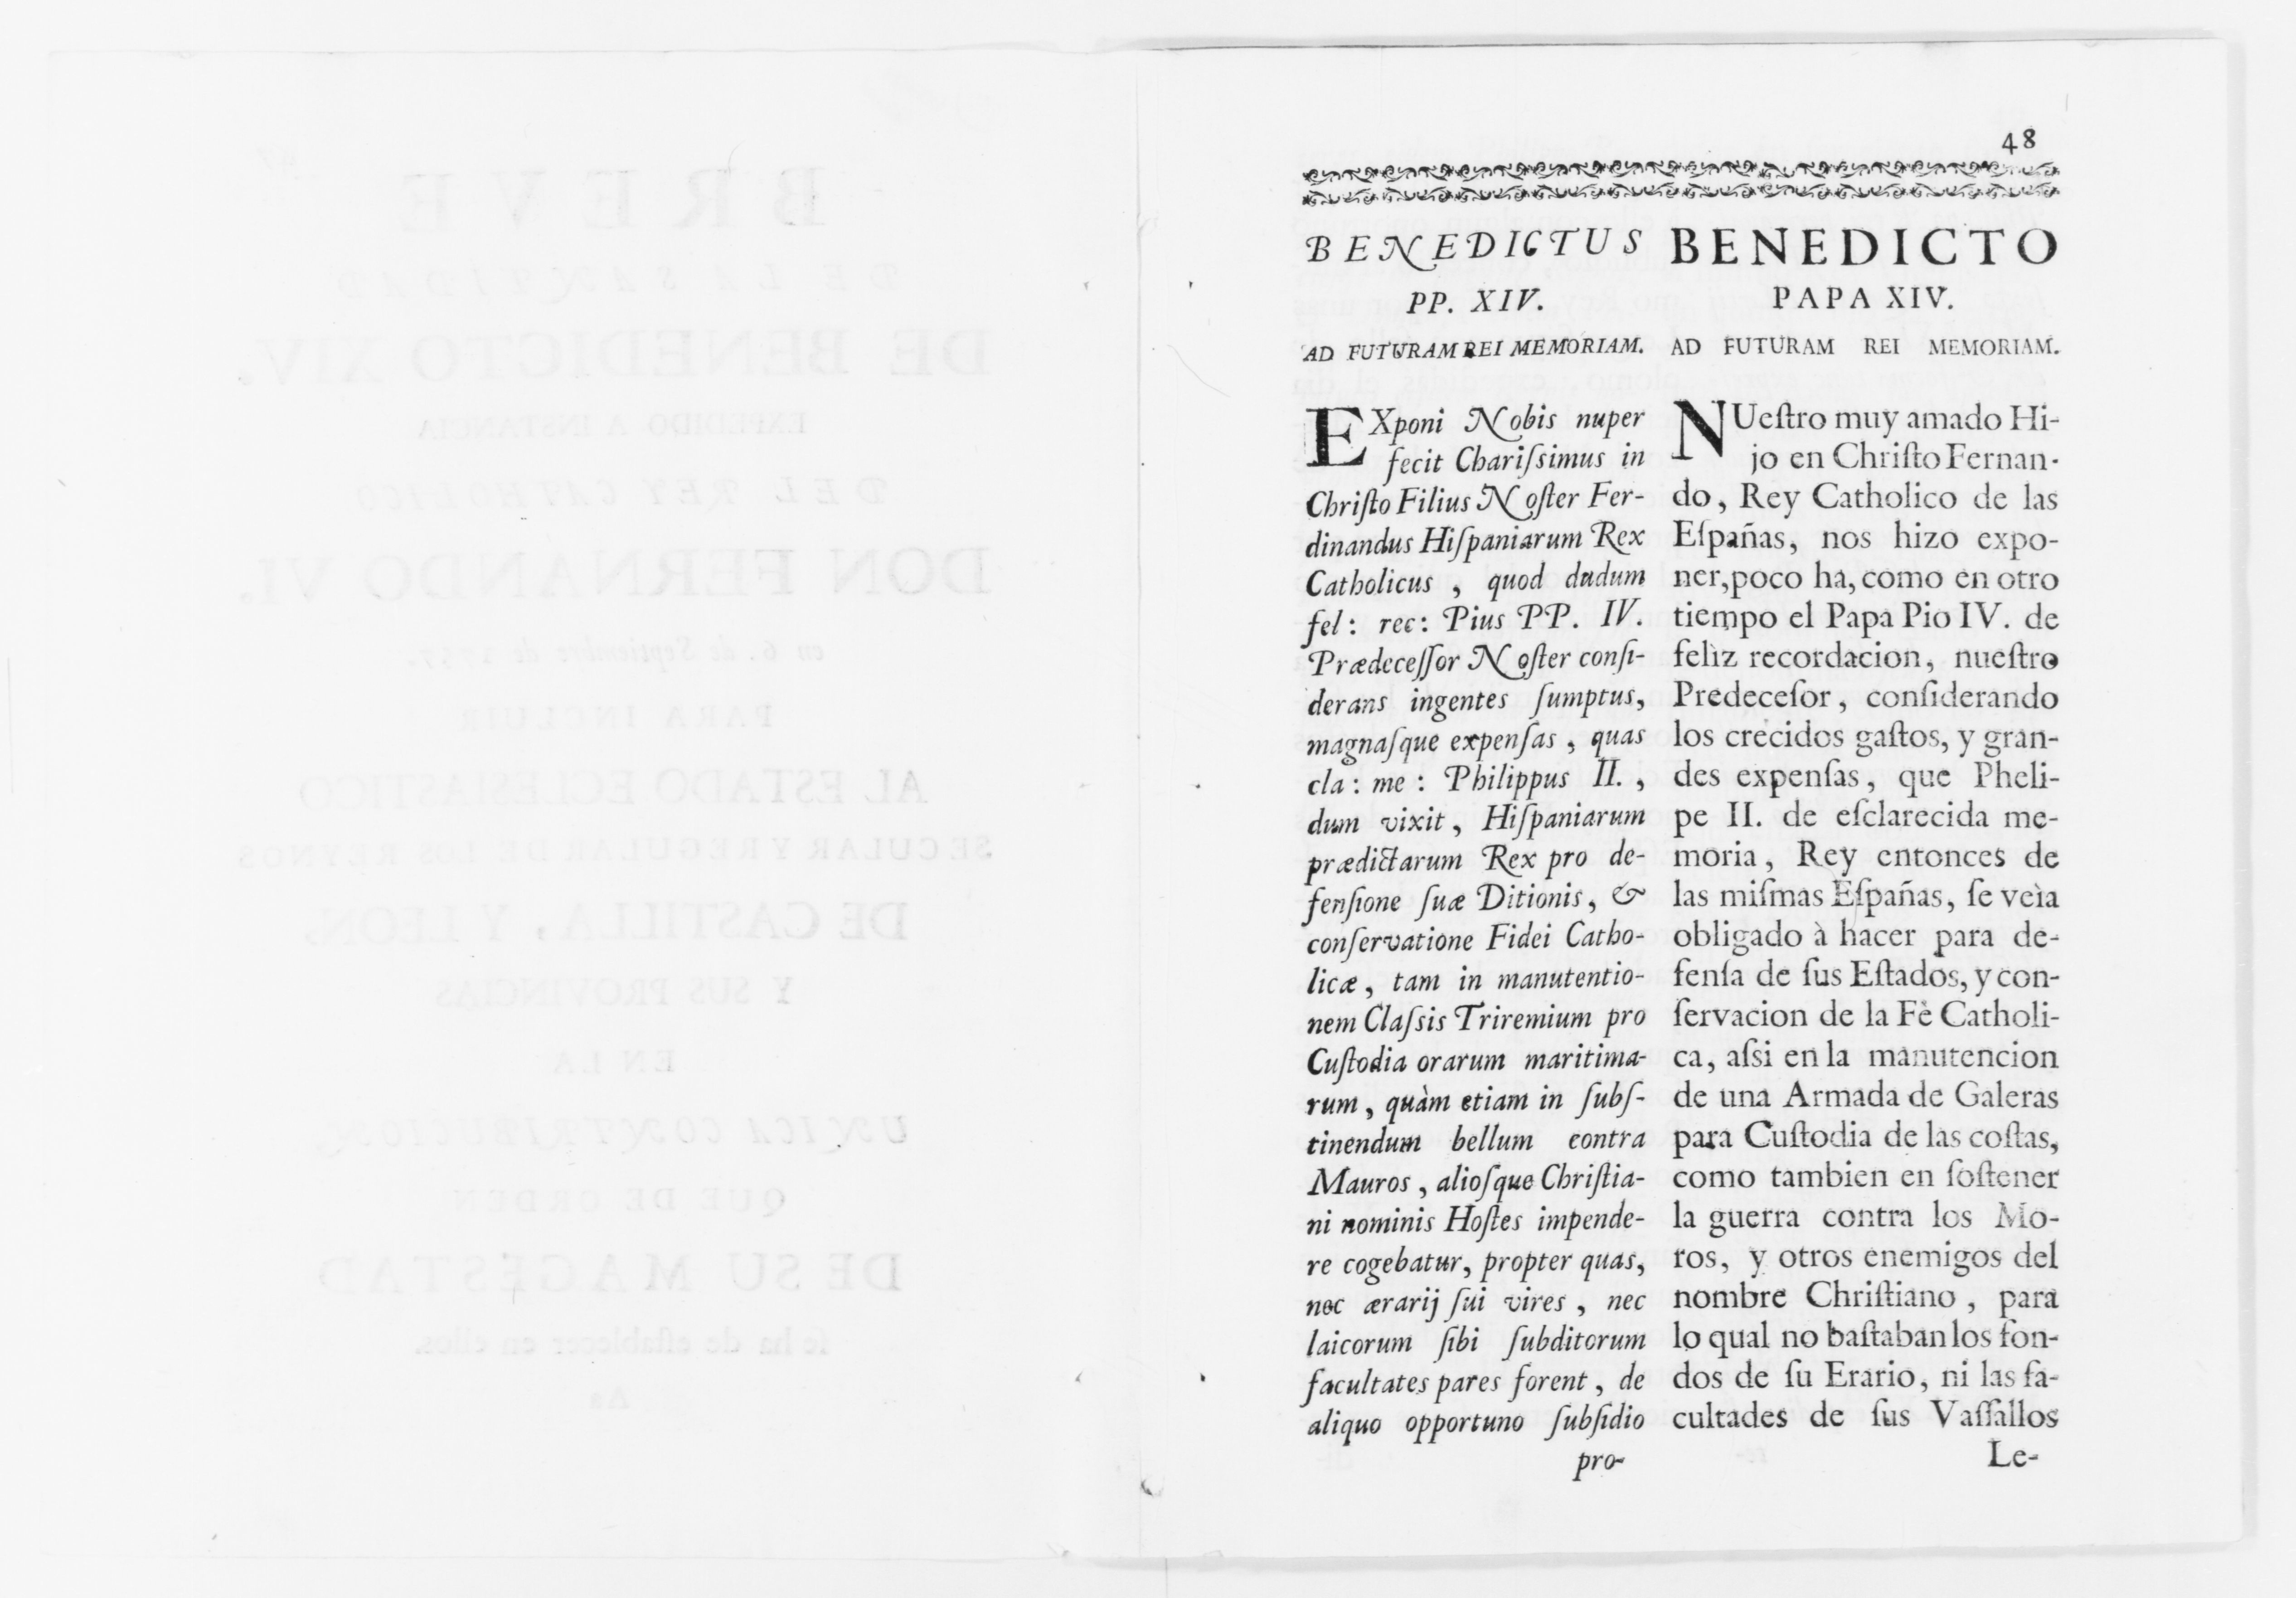 48
BENEDICTUS
PP. XIV.
AD FUTURAM REI MEMORIAM.
EXponi Nobis nuper
fecit Chariſsimus in
Chriſto Filius Noſter Fer-
dinandus Hiſpaniarum Rex
Catholicus , quod dudum
fel: rec: Pius PP. IV.
Prædeceſſor Noſter conſi-
derans ingentes ſumptus,
magnaſque expenſas , quas
cla: me: Philippus II.,
dum vixit, Hiſpaniarum
prædictarum Rex pro de-
fenſione ſuæ Ditionis, &
conſervatione Fidei Catho-
licæ, tam in manutentio-
nem Claſsis Triremium pro
Cuſtodia orarum maritima-
rum, quàm etiam in ſubſ-
tinendum bellum contra
Mauros, alioſque Chriſtia-
ni nominis Hoſtes impende-
re cogebatur, propter quas,
nec ærarij ſui vires, nec
laicorum ſibi ſubditorum
facultates pares forent, de
aliquo opportuno ſubſidio
pro-
BENEDICTO
PAPA XIV.
AD FUTURAM REI MEMORIAM.
NUeſtro muy amado Hi-
jo en Chriſto Fernan-
do, Rey Catholico de las
Eſpañas, nos hizo expo-
ner, poco ha, como en otro
tiempo el Papa Pio IV. de
felìz recordacion, nueſtro
Predeceſor, conſiderando
los crecidos gaſtos, y gran-
des expenſas, que Pheli-
pe II. de eſclarecida me-
moria, Rey entonces de
las miſmas Eſpañas, ſe veìa
obligado à hacer para de-
fenſa de ſus Eſtados, y con-
ſervacion de la Fè Catholi-
ca, aſsi en la manutencion
de una Armada de Galeras
para Cuſtodia de las coſtas,
como tambien en ſoſtener
la guerra contra los Mo-
ros, y otros enemigos del
nombre Chriſtiano, para
lo qual no baſtaban los fon-
dos de ſu Erario, ni las fa-
cultades de ſus Vaſſallos
Le-